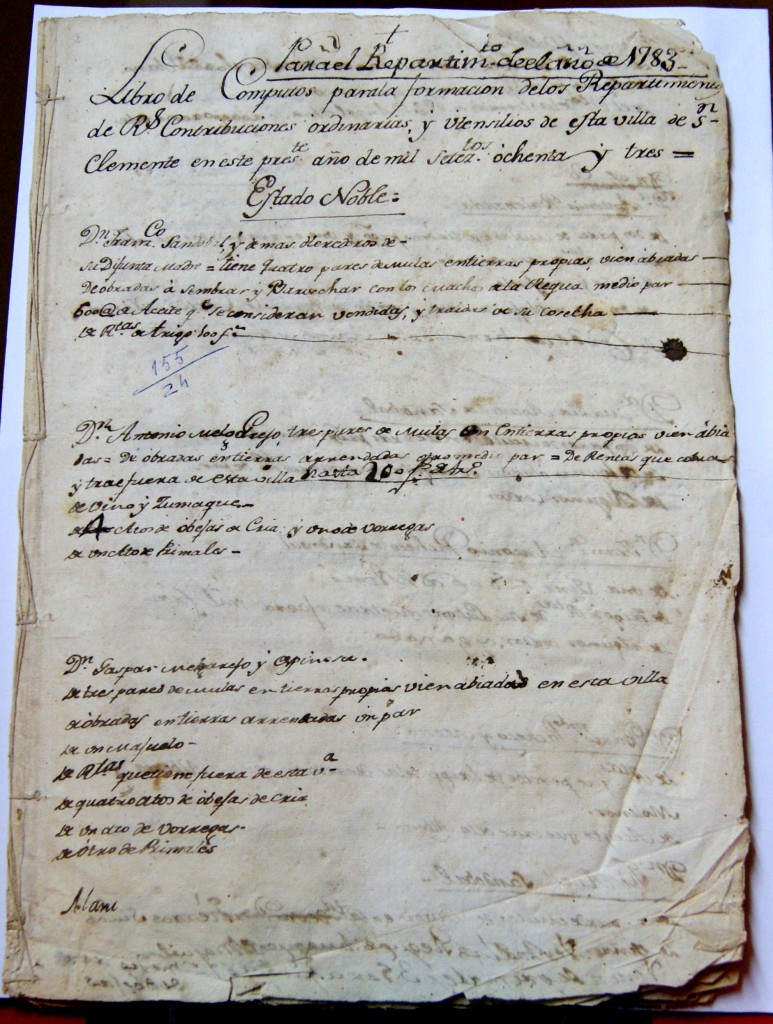 †
Para el Repartim.to de el año de 1783
Libro de Computos para la formacion de los Repartimientos
de R.s Contribuciones ordinarias, y Utensilios de esta villa de S.n
Clemente en este pres.te año de mil Setez.tos óchenta y tres =
Estado Noble =
D.n Fran.co Sandobal, y demas herederos de
su Difunta Madre = tiene quatro pares de Mulas en tierras propias, vien abiadas
De obradas á sembrar y con los a la medio par
600@ de Aceite q.e se consideran vendidas, y traidas de su cosecha
de R.tas de trigo 100 f.s
155
24
D.n Antonio Melgarejo, tres pares de Mulas en tierras propias vien abia
das = De óbradas en tierras arrendadas otro medio par = De Rentas que cobra
y trae fuera de esta villa hasta 200 f.s
de vino y Zumaque
de 4 Atos de obejas de Cria y uno de vorregas
de un Ato de Primales
D.n Gaspar Melgarejo y Espinosa.
de tres pares de Mulas en tierras propias vien abiadas en esta villa
de óbradas en tierras arrendadas un par
de un Majuelo
de R.tas que tiene fuera de esta v.a
de quatro atos de obejas de cria
de un ato de vorregas
de ótro de Primales